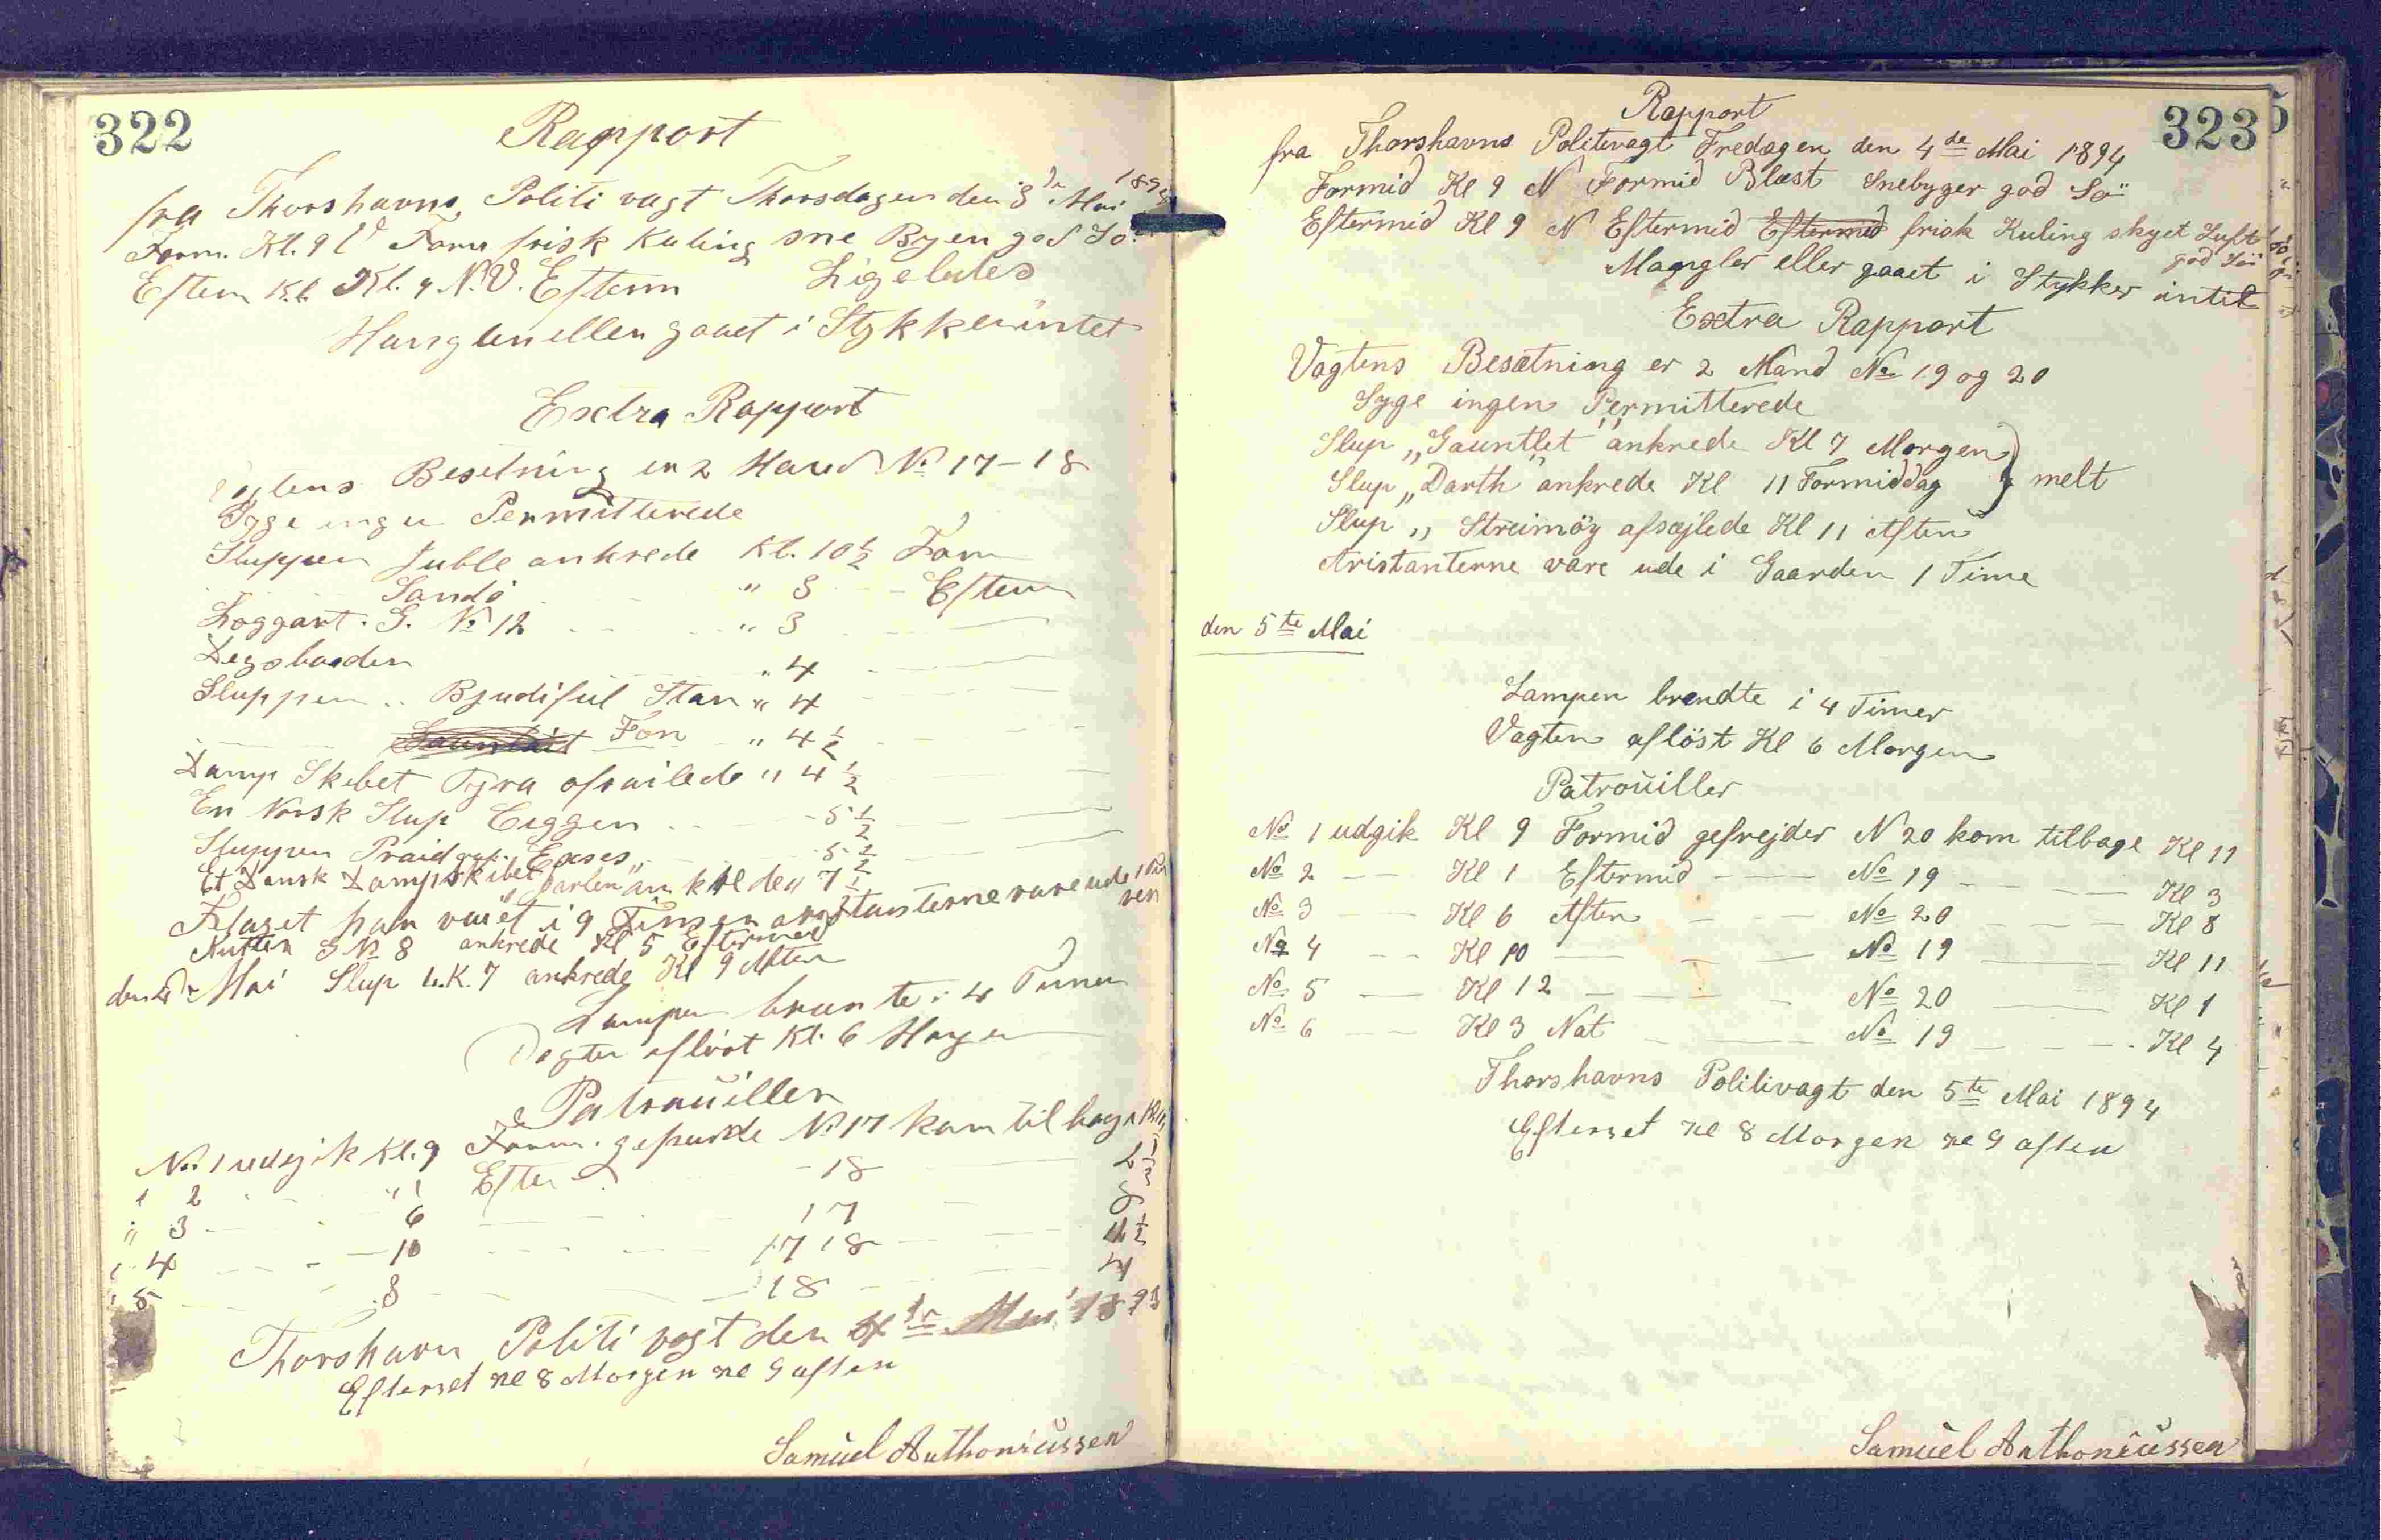 322
Rapport
fra Thorshavns Politi vagt Thorsdagen den 3de Mai 189
Form. Kl. 9 V Form frisk Kuling sne Byen god Sö
Efterm Kl. 9 N.V. Efterm Ligeledes
Manglen ellen gaaet i Stykker intet
Extra Rapport
Vagtens Besetning er 2 Mand No 17-18
Syge ingen Permitterede
Sluppen Juble ankrede Kl. 10½ Form
Sandö " 3 Efterm
Loggart. G. No 12 " 3
Degsbaaden " 4
Sluppen Bjudiful Stan " 4
Fon " 4½
Damp Skibet Tyra afsailede " 4½
En Norsk Slup Eiggen 5½
Sluppen Praid Exses 5½
Et Dansk Dampskibet "Darlen" ankrede " 7½
Flaget han varet i 9 Timer arestanterne vare ude 1
Kutter G No 8 ankrede Kl 5 Eftermed
den 4de Mai Slup L.K. 7 ankrede Kl 9 Aften
Lampen brante i 4 Timer
Vagten aflöst Kl. 6 Morgen
Patrouiller
No. 1 udgik Kl. 9 Form. No 17 kom tilbage Kl 11
" 2 " 1 Efter 18 2½
" 3 6 17 8
" 4 10 17 18 11½
" 5 3 18 4
Thorshavn Politi vagt den 4de Mai 189
Efterset Kl 8 Morgen Kl 9 aften
Samuel Anthoniussen
323
Rapport
fra Thorshavns Politivagt Fredagen den 4de Mai 1894
Formid Kl 9 N Formid Blæst Snebyger god Sö
Eftermid Kl 9 N Eftermid Eftermid frisk Kuling skyet Luft
god Sö
Mangler eller gaaet i Stykker intet
Extra Rapport
Vagtens Besætning er 2 Mand No 19 og 20
Syge ingen Permitterede
Slup „Gauntlet" ankrede Kl 7 Morgen
Slup „Darth" ankrede Kl 11 Formiddag } melt
Slup „ Streimöy afsejlede Kl 11 Aften
Aristanterne vare ude i Gaarden 1 Time
den 5te Mai
Lampen brendte i 4 Timer
Vagten aflöst Kl 6 Morgen
Patrouiller
No 1 udgik Kl 9 Formid gefrejder N 20 kom tilbage Kl 11
No 2 Kl 1 Eftermid No 19 Kl 3
No 3 Kl 6 Aften No 20 Kl 8
No 4 Kl 10 No 19 Kl 11
No 5 Kl 12 No 20 Kl 1
No 6 Kl 3 Nat No 19 Kl 4
Thorshavns Politivagt den 5te Mai 1894
Efterset Kl 8 Morgen Kl 9 aften
Samuel Anthoniussen